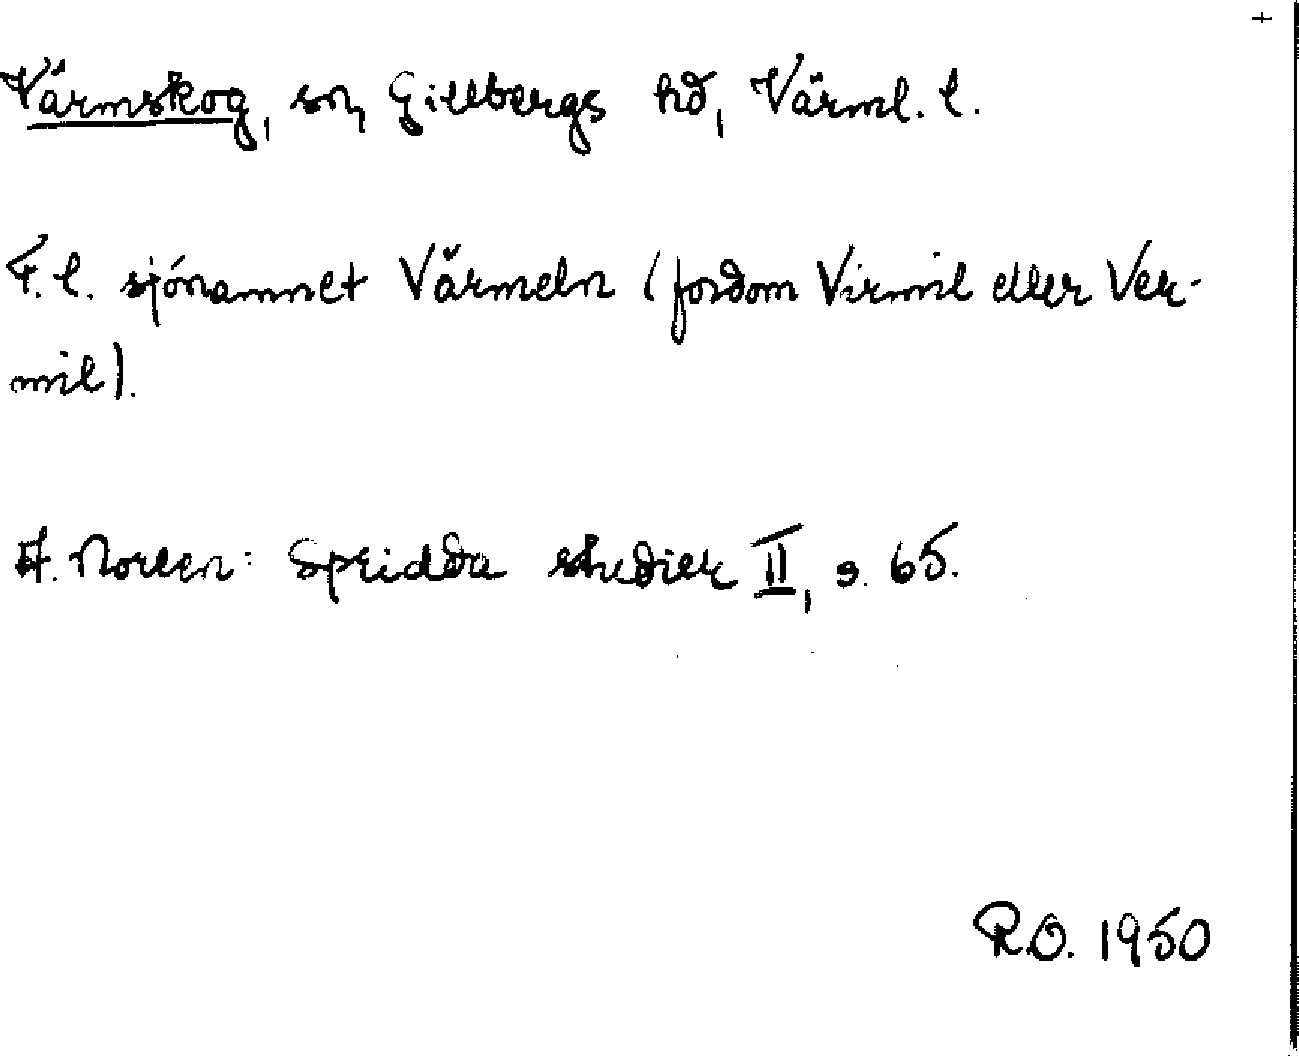 +
Värmskog, sn, Gillbergs hd, Värml. l.
F. l. sjönamnet Värmeln (fordom Virmil eller Ver-
mil).
A. Noreen: Spridda studier II, s. 65.
R.O. 1950